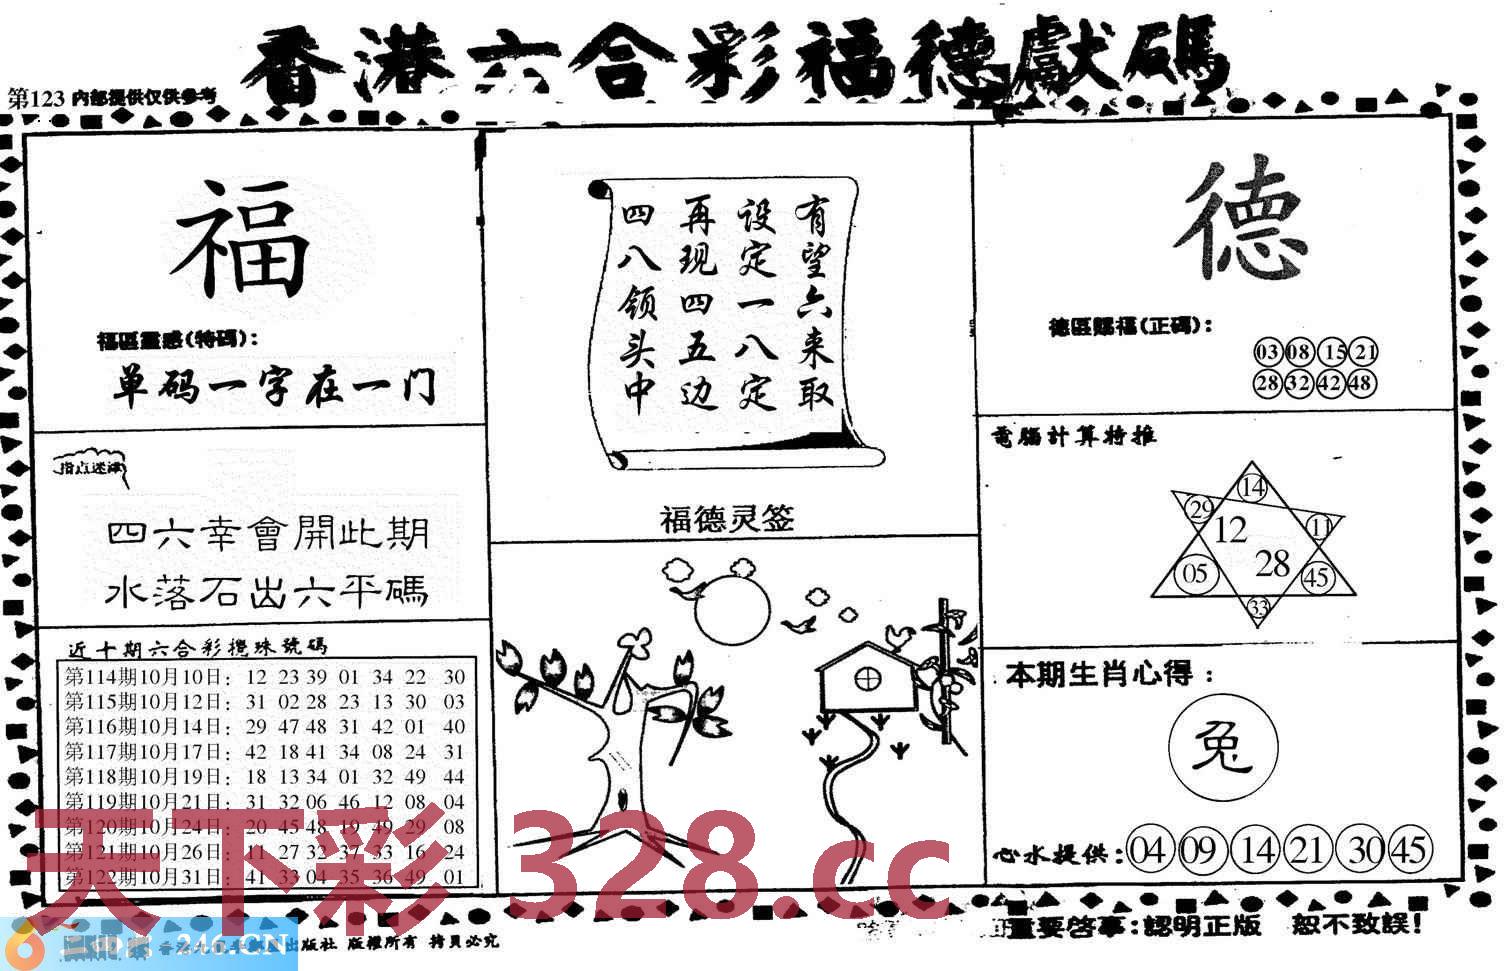 香港六合彩福德獻碼
第123 内部提供仅供参考
福
福區靈感(特碼):
单码一字在一门
指点迷津
四六幸會開此期
水落石出六平碼
近十期六合彩攪珠號碼
第114期10月10日: 12 23 39 01 34 22 30
第115期10月12日: 31 02 28 23 13 30 03
第116期10月14日: 29 47 48 31 42 01 40
第117期10月17日: 42 18 41 34 08 24 31
第118期10月19日: 18 13 34 01 32 49 44
第119期10月21日: 31 32 06 46 12 08 04
第120期10月24日: 20 45 48 19 49 29 08
第121期10月26日: 11 27 32 37 33 16 24
第122期10月31日: 41 33 04 35 36 49 01
有望六来取
设定一八定
再现四五边
四八领头中
福德灵签
德
德區賜福(正碼):
03 08 15 21
28 32 42 48
電腦計算特推
14
29 11
12
28
05 45
33
本期生肖心得:
兔
心水提供: 04 09 14 21 30 45
天下彩 328.cc
246.CN
出版社 版權所有 拷貝必究
重要啓事:認明正版 恕不致誤!